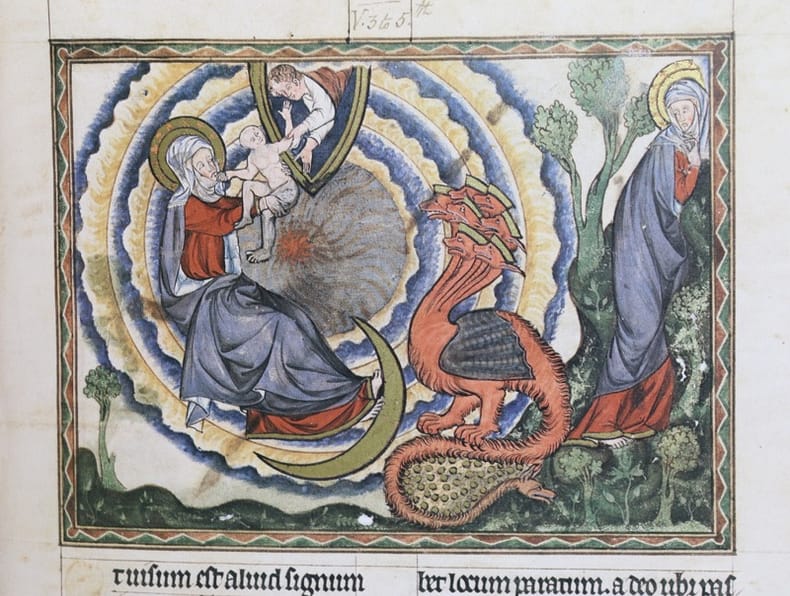 V. 3 to 5.th
t uisum est aliud signum
bet locum paratum. a deo ubi pas